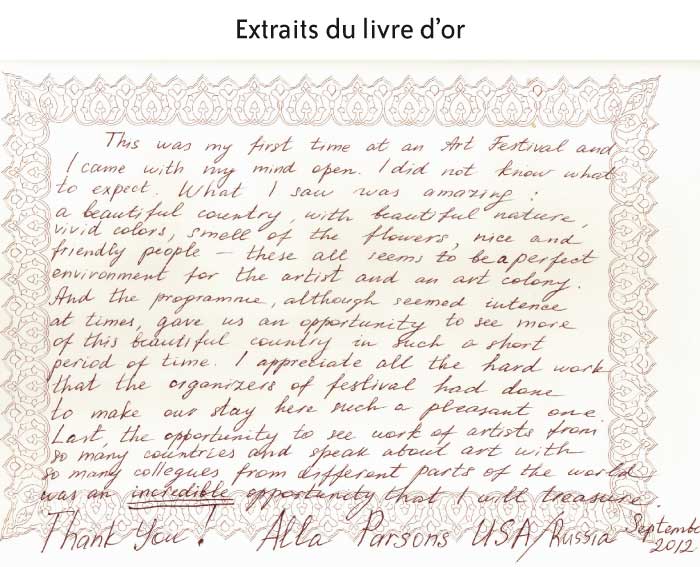 Extraits du livre d'or
This was my first time at an Art Festival and
I came with my mind open. I did not know what
to expect. What I saw was amazing:
a beautiful country, with beautiful nature,
vivid colors, smell of the flowers, nice and
friendly people – these all seems to be a perfect
environment for the artist and an art colony.
And the programme, although seemed intence
at times, gave us an opportunity to see more
of this beautiful country in such a short
period of time. I appreciate all the hard work
that the organizers of festival had done
to make our stay here such a pleasant one.
Last, the opportunity to see work of artists from
so many countries and speak about art with
so many collegues from different parts of the world
was an incredible opportunity that I will treasure.
Thank You! Alla Parsons USA/Russia September
2012